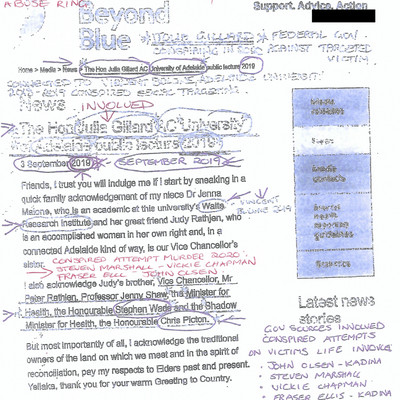 ABUSE RING
Support. Advice. Action
Beyond
Blue
JULIE GILLARD
FEDERAL GOV.
CONSPIRING IN
AGAINST TARGETED
VICTIM
Home > Media > News > The Hon Julia Gillard AC University of Adelaide public lecture 2019
CONNECTED TO
ADELAIDE UNIVERSITY
CONSPIRED
News
INVOLVED
The Hon Julia Gillard AC University
of Adelaide public lecture 2019
3 September 2019
SEPTEMBER 2019
Friends, I trust you will indulge me if I start by sneaking in a
quick family acknowledgement of my niece Dr Jenna
Malone, who is an academic at this university's Waite
Research Institute and her great friend Judy Rathjen, who
VINCENT
2019
is an accomplished women in her own right and, in a
connected Adelaide kind of way, is our Vice Chancellor's
sister.
CONSPIRED ATTEMPT MURDER 2020.
STEVEN MARSHALL - VICKIE CHAPMAN
FRASER ELLIS - JOHN OLSEN
I also acknowledge Judy's brother, Vice Chancellor, Mr
Peter Rathjen, Professor Jenny Shaw, the Minister for
Health, the Honourable Stephen Wade and the Shadow
Minister for Health, the Honourable Chris Picton.
But most importantly of all, I acknowledge the traditional
owners of the land on which we meet and in the spirit of
reconciliation, pay my respects to Elders past and present.
Yellaka, thank you for your warm Greeting to Country.
Media
releases
Media
contacts
guidelines
Latest news
stories
GOV SOURCES INVOLVED
CONSPIRED ATTEMPTS
ON VICTIMS LIFE INVOLVE
• JOHN OLSEN - KADINA
• STEVEN MARSHALL
• VICKIE CHAPMAN
• FRASER ELLIS - KADINA